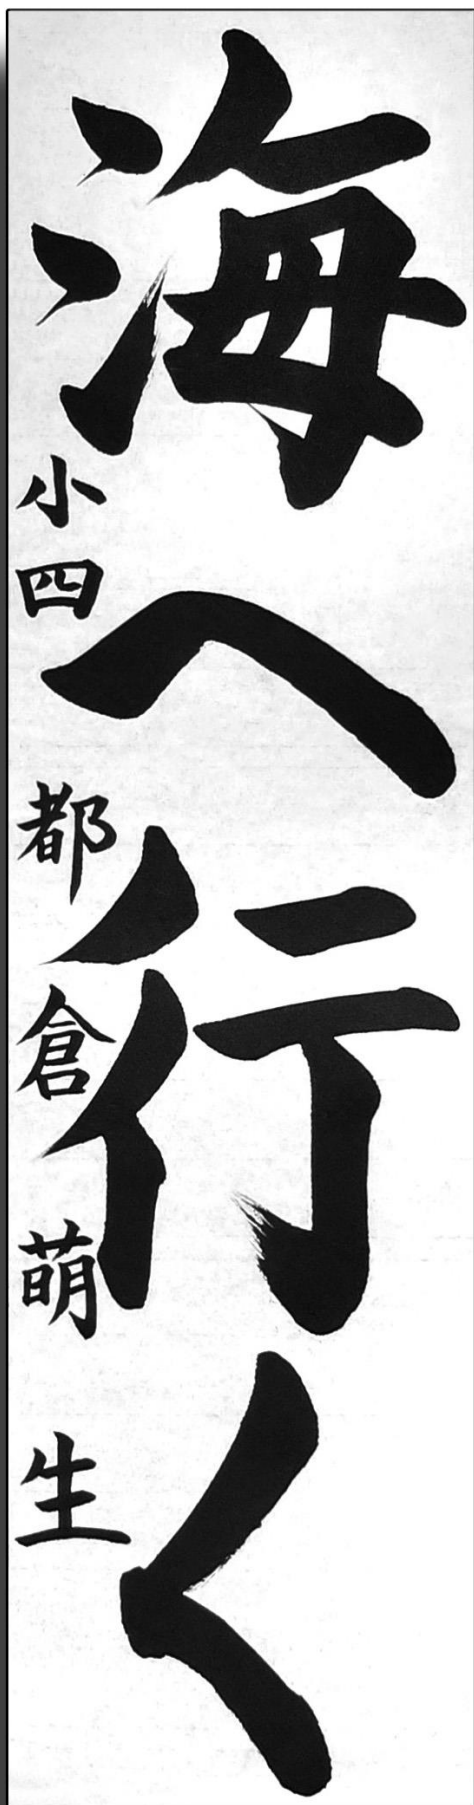 海へ行く
小四 都倉萌生